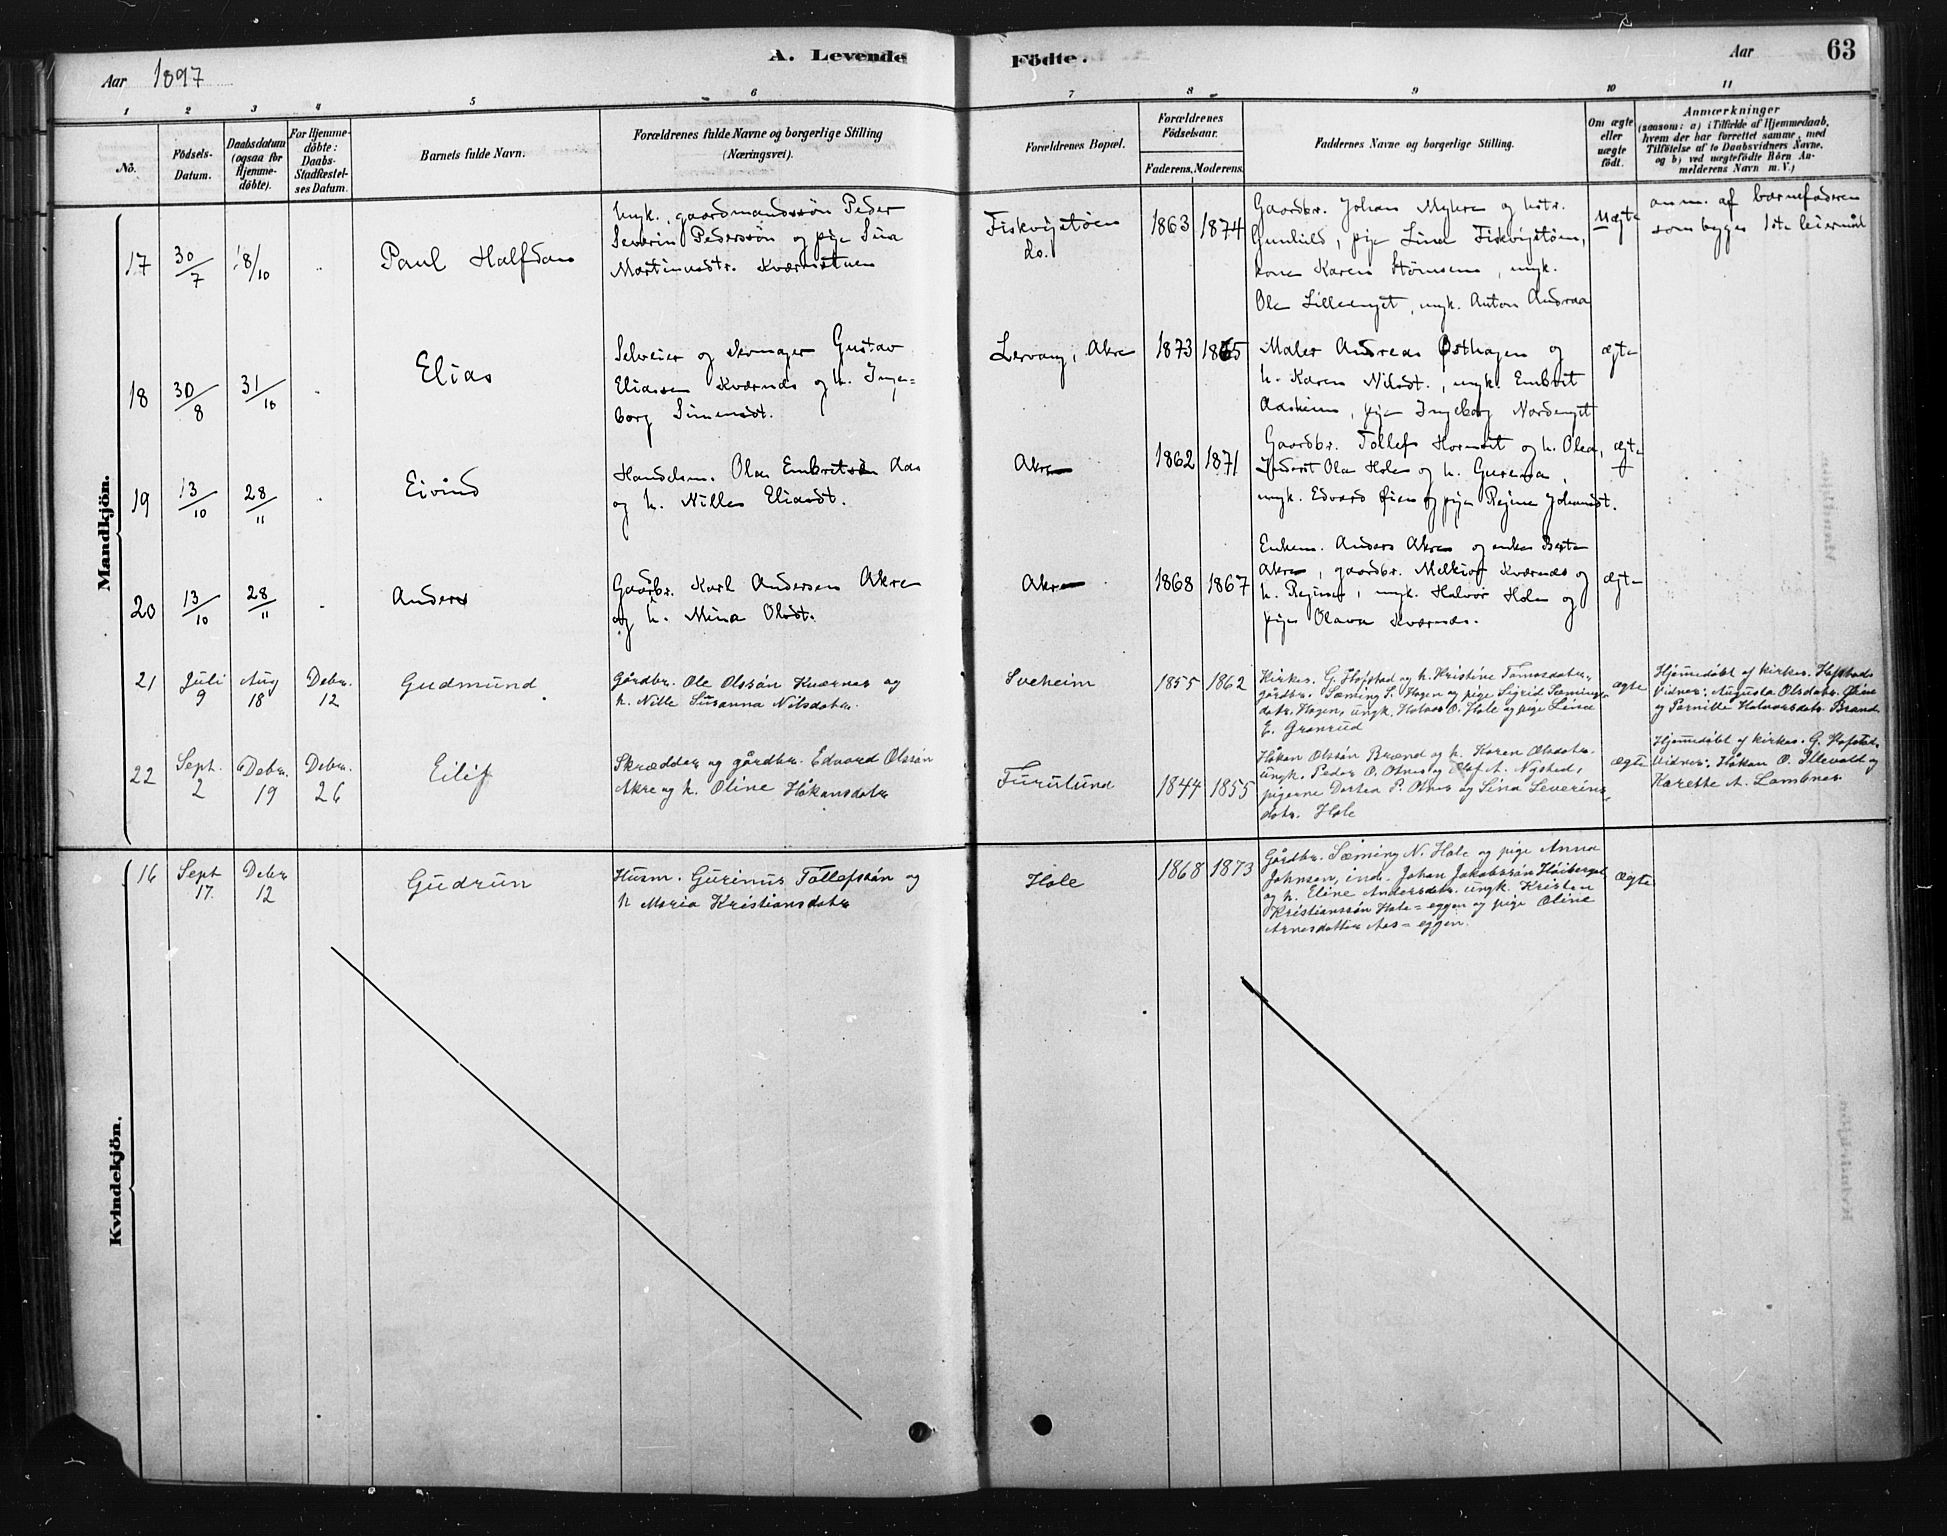 A. Levende Födte.
Aar 1897
Aar 63
1 2 3 4 5 6 7 8 9 10 11
No.
Födsels-Datum.
Daabsdatum (ogsaa for Hjemme-döbte).
For Hjemme-döbte: Daabs-Stadfæstelses Datum.
Barnets fulde Navn.
Forældrenes fulde Navne og borgerlige Stilling (Næringsvei).
Forældrenes Bopæl.
Forældrenes Födselsaar.
Faderens. Moderens.
Faddernes Navne og borgerlige Stilling.
Om ægte eller uægte födt.
Anmærkninger
(saasom: a) i Tilfælde af Hjemmedaab,
hvem der har forrettet samme, med
Tilföielse af to Daabsvidners Navne,
og b) ved uægtefödte Börn An-
melderens Navn m.V.)
Mandkjön.
17 30/7 18/10 Paul Halfdan
Ungk. gaardmandssøn Peder
Severin Pederssøn og pige Sina
Martinusdtr. Kværnstuen
Fiskvigstøen
do.
1863 1874
Gaardbr. Johan Myhre og hstr.
Gunhild, pige Lina Fiskvigstøen,
kone Karen Stømsem, ungk.
Ole Lilleenget, ungk. Anton Andraa
Uægte
anm. af barnefaderen
som bygges 1ste leiermål
18 30/8 31/10 Elias
Selveier og skomager Gustav
Eliassen Kværnes og h. Inge=
borg Simensdt.
Lervang, Akre
1873 1865
Maler Andreas Østhagen og
h. Karen Nilsdt., ungk. Embret
Aasheim, pige Ingeborg Nordenget
ægte
19 13/10 28/11 Eivind
Handelsm. Ola Embretsen Aas
og h. Nille Eliasdt.
Akre
1862 1871
Gaardbr. Tollef Hornset og h. Olea,
Inderst Ola Hole og h. Gurena,
ungk. Edvard Øien og pige Regine Johansdt.
ægte
20 13/10 28/11 Anders
Gaarbr. Karl Andersen Akre
og h. Mina Olsdt.
Akre
1868 1867
Enkem. Anders Akre og enke Berte
Akre, gaardbr. Melkior Kværnes og
h. Regine, ungk. Halvor Hole og
pige Olava Kværnes.
ægte
21 Juli 9 Aug 18 Debr. 12 Gudmund.
Gårdbr. Ole Olssön Kværnes og
h. Nille Susanna Nilsdatter.
Sveheim
1855 1862
Kirkes. G. Hofstad og h. Kristine Tomasdatter,
gårdbr. Sæming S. Hagen og pige Sigrid Sæmings
datr. Hagen, ungk. Halvor O. Hole og pige Lina
E. Granrud
ægte
Hjemmedöbt af kirkes. Hofstad.
Vidner: Augusta Olsdatr.
og Pernille Halvorsdatr. Brænd
22 Sept. 2 Debr. 19 Debr. 26 Eilif
Skrædder og gårdbr. Edvard Olssön
Akre og h. Oline Håkansdatr
Furulund
1844 1855
Håkan Olssön Brænd og h. Karen Olsdatr.
ungk. Peder O. Otnes og Olaf A. Nysted,
pigerne Dortea P. Otnes og Sina Severins
datr. Hole
ægte
Hjemmedöbt af kirkes. G. Hofstad.
Vidner: Håkan O. Illevold og
Karette A. Lombnes
Kvindekjön.
16 Sept 17. Debr 12 Gudrun
Husm. Gurinus Tollefssön og
h Maria Kristiansdatr
Hole
1868 1873
Gårdbr. Sæming N. Hole og pige Anna
Johnsen, ind. Johan Jakobssön Höiberget
og h. Eline Andersdatr. ungk. Kristen
Kristianssön Hole=eggen og pige Oline
Arnesdatter Aas=eggen.
ægte